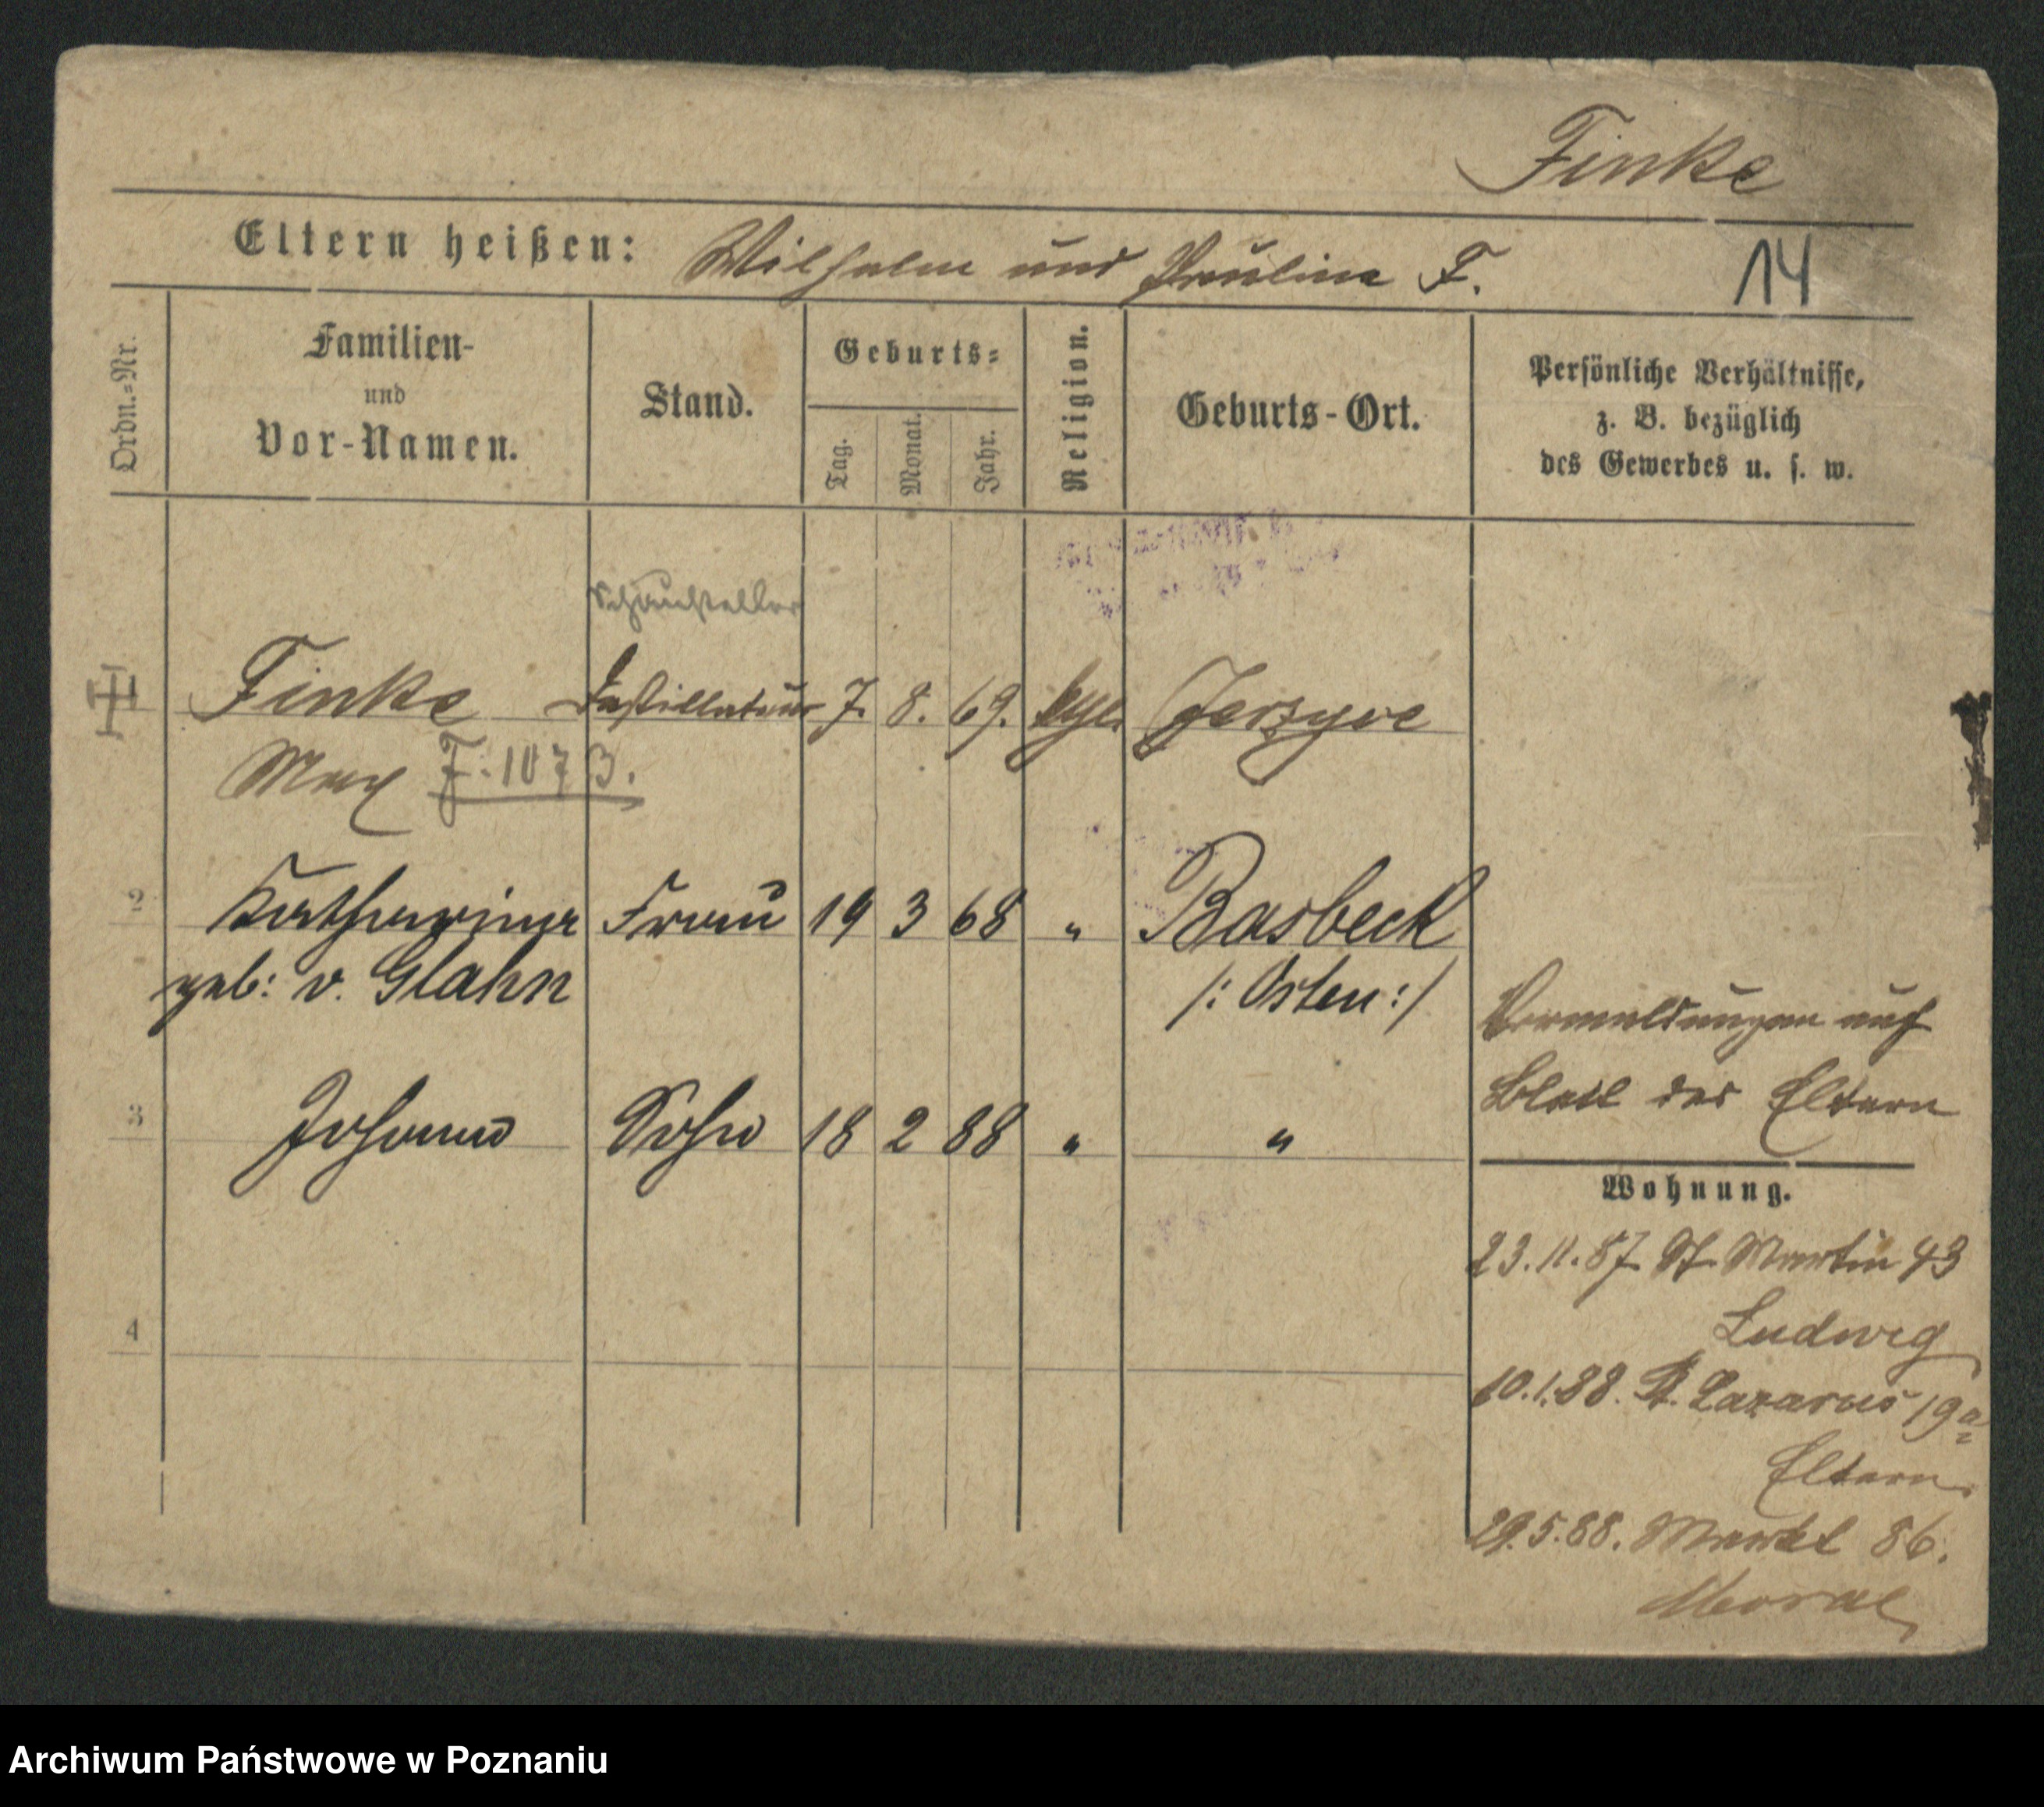 Finke
Eltern heißen: Wilhelm und Paulina F.
14
Ordn.-Nr.
Familien-
und
Vor-Namen.
Stand.
Geburts-
Tag.
Monat.
Jahr.
Religion.
Geburts-Ort.
Persönliche Verhältnisse,
z. B. bezüglich
des Gewerbes u. s. w.
Schausteller
Finke Destillateur 7. 8. 69. Jerzyce
Max F. 1073.
2 Katharina Frau 19 3 68 " Basbeck
geb: v. Glahn /: Osten :/
Vermeldungen auf
Blatt der Eltern
3 Johann Sohn 18 2 88 " "
Wohnung.
23.11.87 St. Martin 43
Ludwig
10.1.88. St. Lazarus 19a
Eltern.
4
29.5.88. Markt 86.
Moral
Archiwum Państwowe w Poznaniu